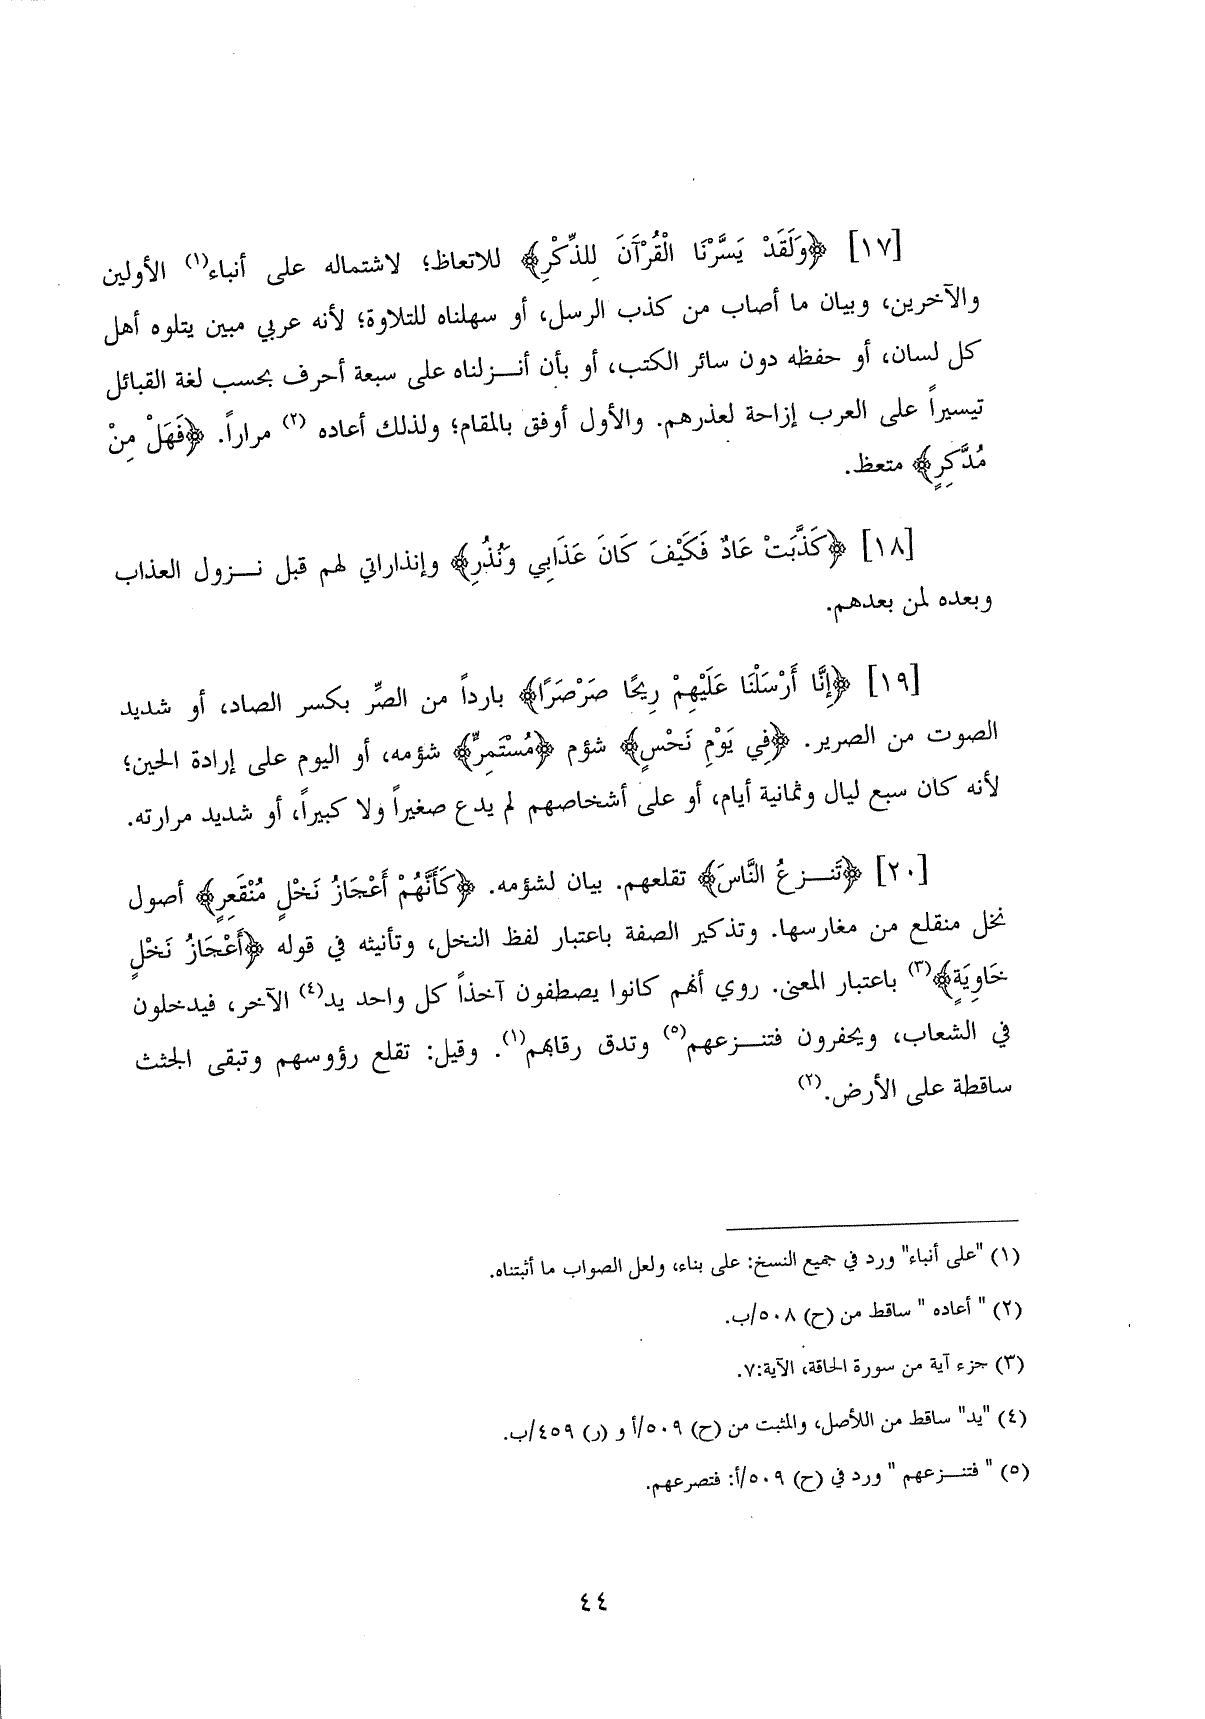 [١٧] ﴿وَلَقَدْ يَسَّرْنَا الْقُرْآنَ لِلذِّكْرِ﴾ للاتعاظ؛ لاشتماله على أنباء(١) الأولين
والآخرين، وبيان ما أصاب من كذب الرسل، أو سهلناه للتلاوة؛ لأنه عربي مبين يتلوه أهل
كل لسان، أو حفظه دون سائر الكتب، أو بأن أنـزلناه على سبعة أحرف بحسب لغة القبائل
تيسيراً على العرب إزاحة لعذرهم. والأول أوفق بالمقام؛ ولذلك أعاده (٢) مراراً. ﴿فَهَلْ مِنْ
مُدَّكِرٍ﴾ متعظ.
[١٨] ﴿كَذَّبَتْ عَادٌ فَكَيْفَ كَانَ عَذَابِي وَنُذُرِ﴾ وإنذاراتي لهم قبل نـزول العذاب
وبعده لمن بعدهم.
[١٩] ﴿إِنَّا أَرْسَلْنَا عَلَيْهِمْ رِيحًا صَرْصَرًا﴾ بارداً من الصِّر بكسر الصاد، أو شديد
الصوت من الصرير. ﴿فِي يَوْمِ نَحْسٍ﴾ شؤم ﴿مُسْتَمِرٍّ﴾ شؤمه، أو اليوم على إرادة الحين؛
لأنه كان سبع ليال وثمانية أيام، أو على أشخاصهم لم يدع صغيراً ولا كبيراً، أو شديد مرارته.
[٢٠] ﴿تَنـزعُ النَّاسَ﴾ تقلعهم. بيان لشؤمه. ﴿كَأَنَّهُمْ أَعْجَازُ نَخْلٍ مُنْقَعِرٍ﴾ أصول
نخل منقلع من مغارسها. وتذكير الصفة باعتبار لفظ النخل، وتأنيثه في قوله ﴿أَعْجَازُ نَخْلٍ
خَاوِيَةٍ﴾(٣) باعتبار المعنى. روي أنهم كانوا يصطفون آخذاً كل واحد يد(٤) الآخر، فيدخلون
في الشعاب، ويحفرون فتنـزعهم(٥) وتدق رقابهم(١). وقيل: تقلع رؤوسهم وتبقى الجثث
ساقطة على الأرض.(٢)
(١) "على أنباء" ورد في جميع النسخ: على بناء، ولعل الصواب ما أثبتناه.
(٢) " أعاده " ساقط من (ح) ٥٠٨/ب.
(٣) جزء آية من سورة الحاقة، الآية:٧.
(٤) "يد" ساقط من اللأصل، والمثبت من (ح) ٥٠٩/أ و (ر) ٤٥٩/ب.
(٥) " فتنـزعهم " ورد في (ح) ٥٠٩/أ: فتصرعهم.
٤٤